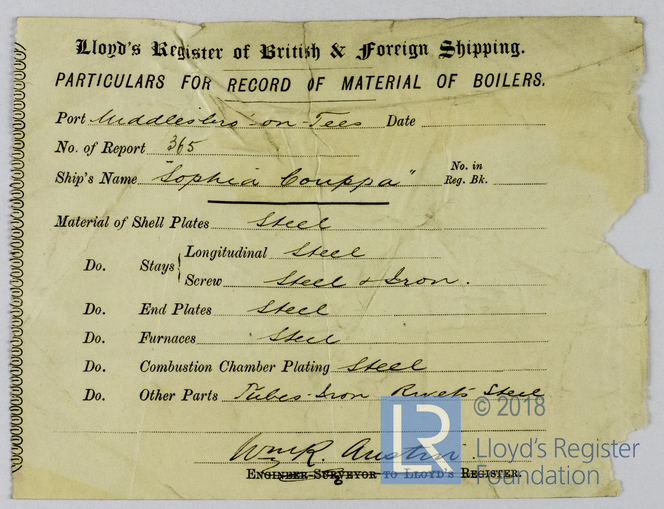 Lloyd's Register of British & Foreign Shipping.
PARTICULARS FOR RECORD OF MATERIAL OF BOILERS.
Port Middlesbro' on-Tees Date
No. of Report 365
Ship's Name "Sophia Couppa" No. in Reg. Bk.
Material of Shell Plates Steel
Do. Stays { Longitudinal Steel
Screw Steel & Iron.
Do. End Plates Steel
Do. Furnaces Steel
Do. Combustion Chamber Plating Steel
Do. Other Parts Tubes-Iron Rivets Steel
Wm R. Austin.
ENGINEER-SURVEYOR TO LLOYD'S REGISTER.
LR © 2018
Lloyd's Register
Foundation